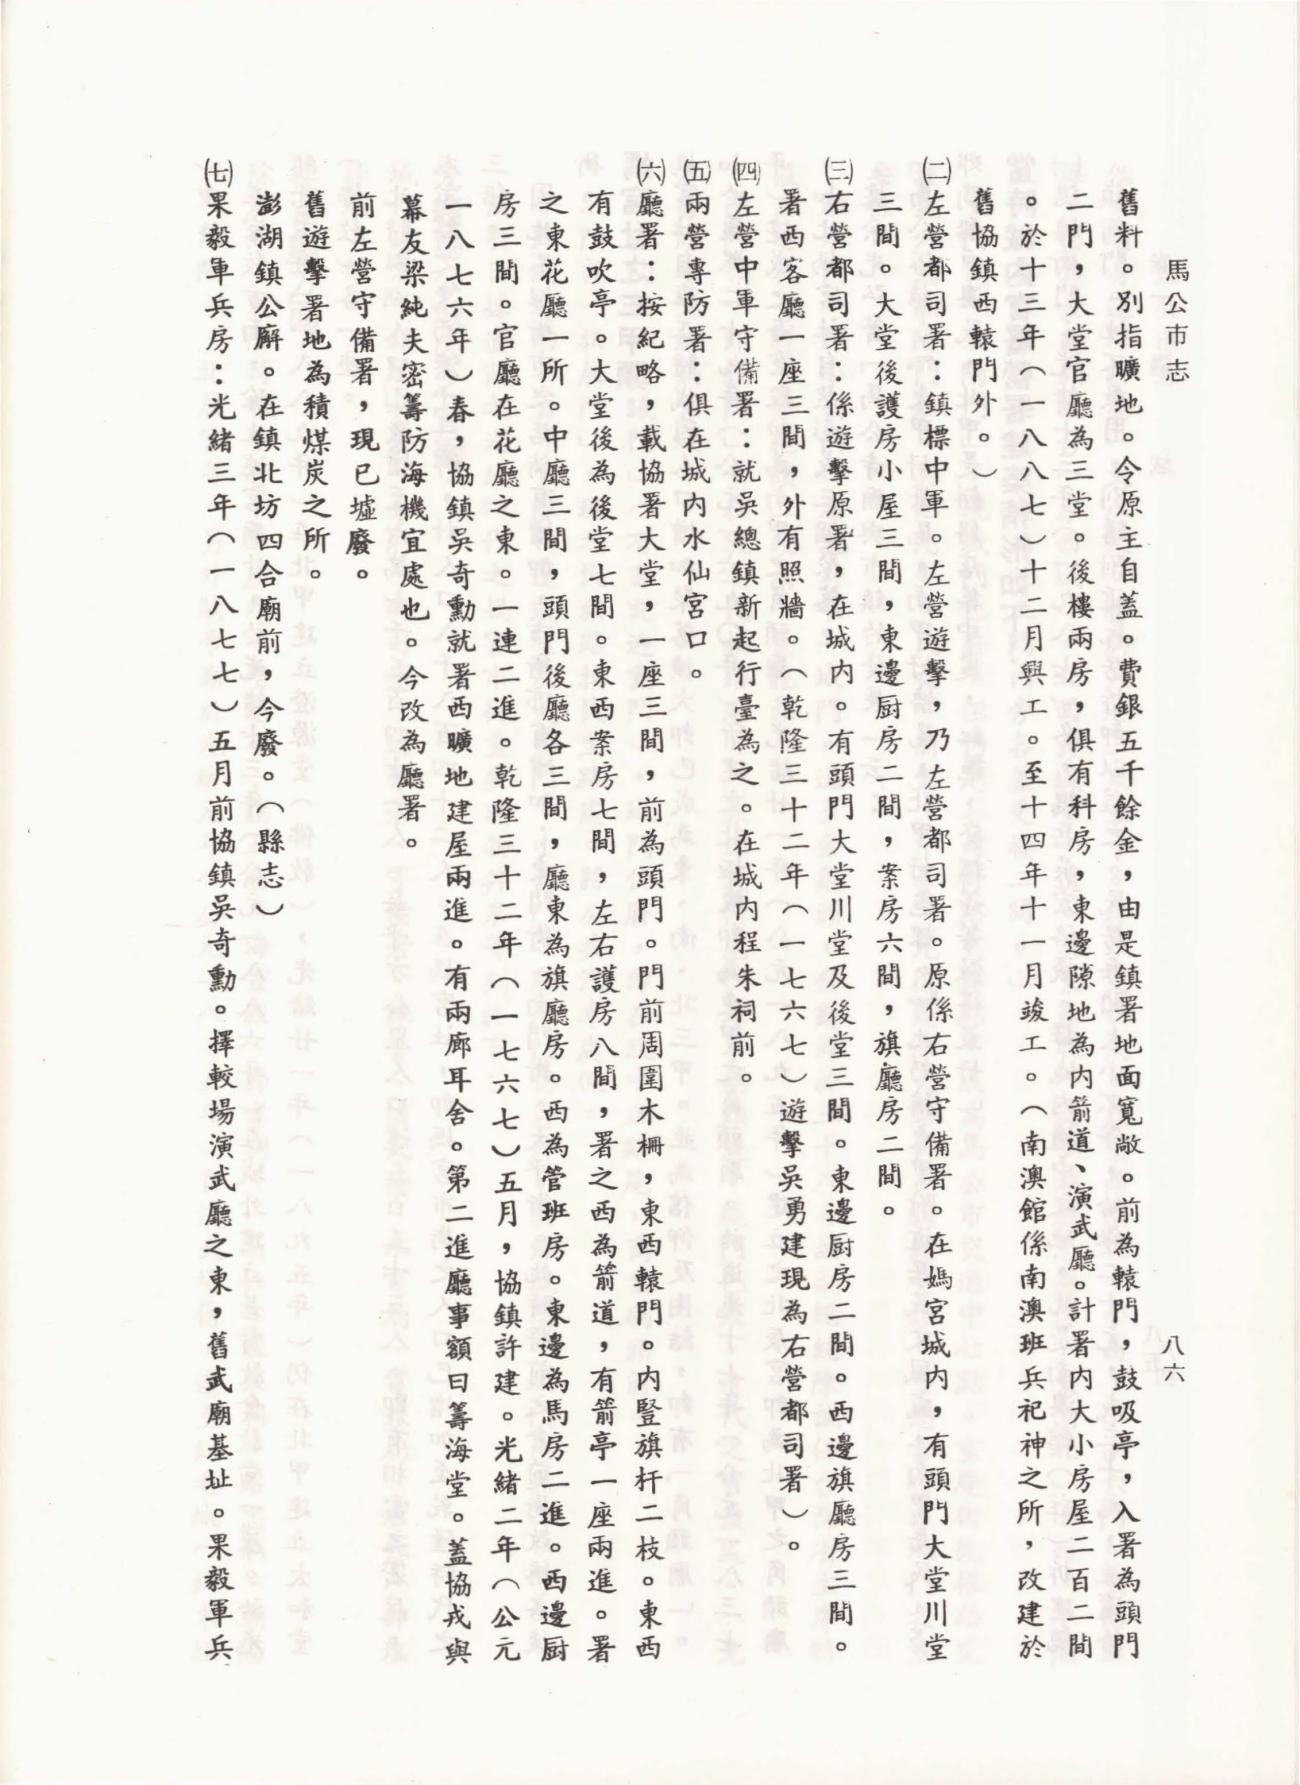 馬公市志
八六
舊料。別指曠地。令原主自蓋。費銀五千餘金，由是鎮署地面寬敞。前為轅門，鼓吸亭，入署為頭門
二門，大堂官廳為三堂。後樓兩房，俱有科房，東邊隙地為內箭道、演武廳。計署內大小房屋二百二間
。於十三年（一八八七）十二月興工。至十四年十一月竣工。（南澳館係南澳班兵祀神之所，改建於
舊協鎮西轅門外。）
㈡左營都司署：鎮標中軍。左營遊擊，乃左營都司署。原係右營守備署。在媽宮城內，有頭門大堂川堂
三間。大堂後護房小屋三間，東邊厨房二間，案房六間，旗廳房二間。
㈢右營都司署：係遊擊原署，在城內。有頭門大堂川堂及後堂三間。東邊厨房二間。西邊旗廳房三間。
署西客廳一座三間，外有照牆。（乾隆三十二年（一七六七）遊擊吳勇建現為右營都司署）。
㈣左營中軍守備署：就吳總鎮新起行臺為之。在城內程朱祠前。
㈤兩營專防署：俱在城內水仙宮口。
㈥廳署：按紀略，載協署大堂，一座三間，前為頭門。門前周圍木柵，東西轅門。內豎旗杆二枝。東西
有鼓吹亭。大堂後為後堂七間。東西案房七間，左右護房八間，署之西為箭道，有箭亭一座兩進。署
之東花廳一所。中廳三間，頭門後廳各三間，廳東為旗廳房。西為管班房。東邊為馬房二進。西邊厨
房三間。官廳在花廳之東。一連二進。乾隆三十二年（一七六七）五月，協鎮許建。光緒二年（公元
一八七六年）春，協鎮吳奇勳就署西曠地建屋兩進。有兩廊耳舍。第二進廳事額曰籌海堂。蓋協戎與
幕友梁純夫密籌防海機宜處也。今改為廳署。
前左營守備署，現已墟廢。
舊遊擊署地為積煤炭之所。
澎湖鎮公廨。在鎮北坊四合廟前，今廢。（縣志）
㈦果毅軍兵房：光緒三年（一八七七）五月前協鎮吳奇勳。擇較場演武廳之東，舊武廟基址。果毅軍兵